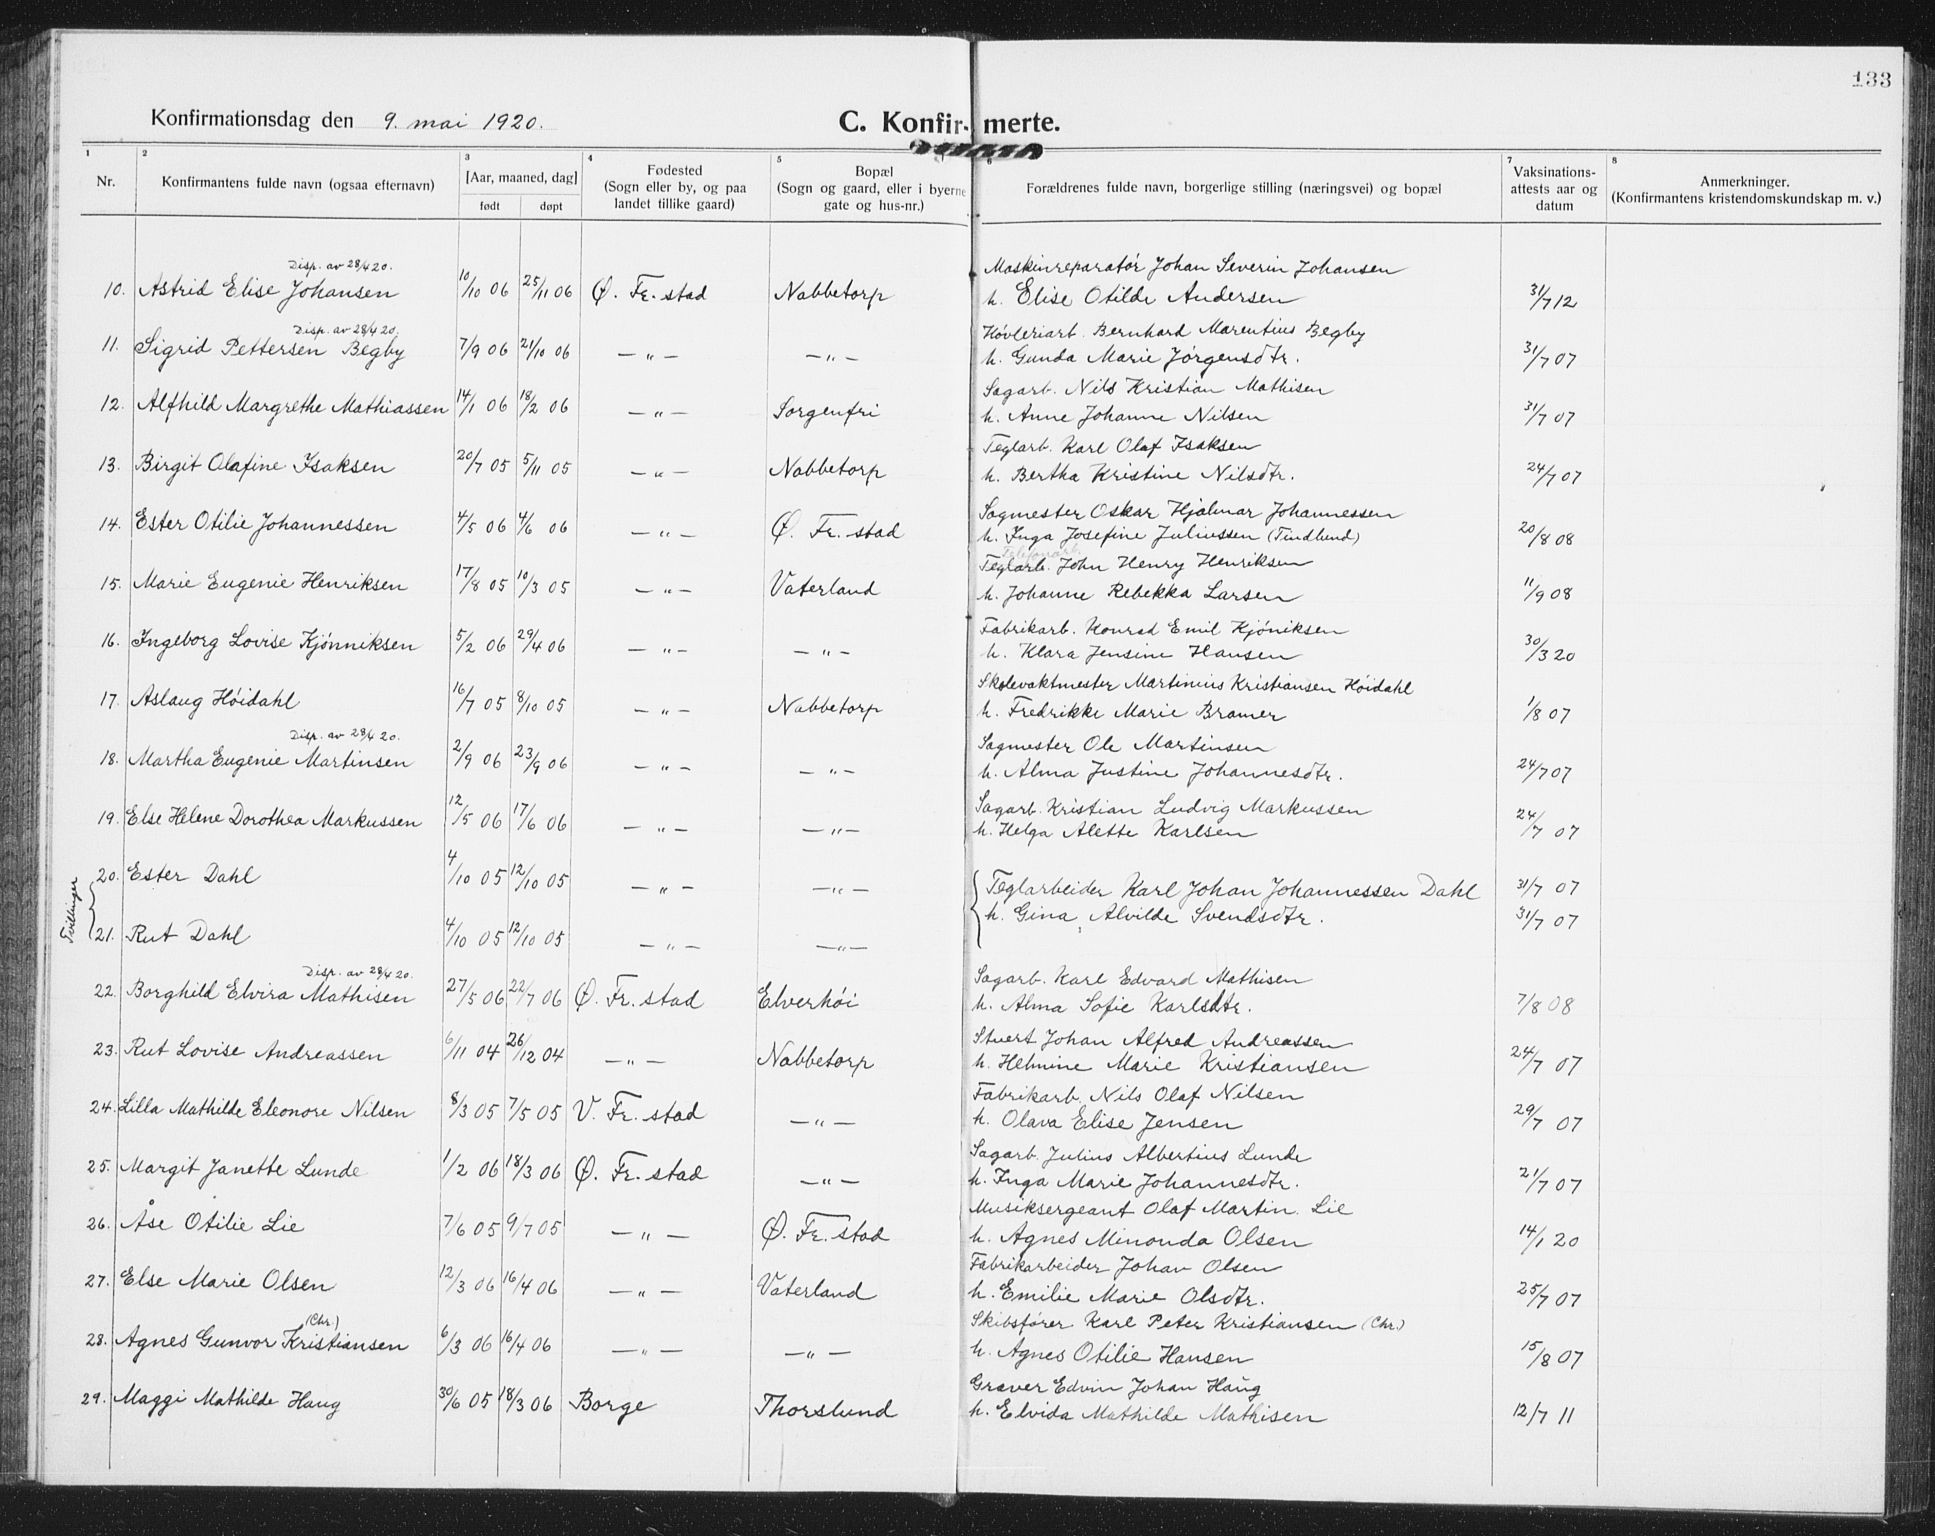 133
Konfirmationsdag den 9. mai 1920.
C. Konfirmerte.
1 2 3 4 5 6 7 8
Nr. Konfirmantens fulde navn (ogsaa efternavn) [Aar, maaned, dag] født døpt Fødested (Sogn eller by, og paa landet tillike gaard) Bopæl (Sogn og gaard, eller i byerne gate og hus-nr.) Forældrenes fulde navn, borgerlige stilling (næringsvei) og bopæl Vaksinations-attests aar og datum Anmerkninger. (Konfirmantens kristendomskundskap m. v.)
Disp. av 28/4 20. Maskinreparatör Johan Severin Johansen
10. Astrid Elise Johansen 10/10 06 25/11 06 Ø. Fr. stad Nabbetorp h. Elise Otilde Andersen 31/7 12
Disp. av 28/4 20. Høvleriarb. Bernhard Marentius Begby
11. Sigrid Pettersen Begby 7/9 06 21/10 06 — " — — " — h. Gunda Marie Jørgensdtr. 31/7 07
Sagarb. Nils Kristian Mathisen
12. Alfhild Margrethe Mathiassen 14/1 06 18/2 06 — " — Sorgenfri h. Anne Johanne Nilsen 31/7 07
Teglarb. Karl Olaf Isaksen
13. Birgit Olafine Isaksen 20/7 05 5/11 05 — " — Nabbetorp h. Bertha Kristine Nilsdtr. 24/7 07
Sagmester Oskar Hjalmar Johannessen
14. Ester Otilie Johannessen 4/5 06 4/6 06 — " — Ø. Fr. stad h. Inga Josefine Juliussen (Tindlund) 20/8 08
Teglarb. John Henry Henriksen
15. Marie Eugenie Henriksen 17/8 05 10/3 05 — " — Vaterland h. Johanne Rebekka Larsen 11/9 08
Fabrikarb. Konrad Emil Kjöniksen
16. Ingeborg Lovise Kjönniksen 5/2 06 29/4 06 — " — — " — h. Klara Jensine Hansen 30/3 20
Skolevaktmester Martinius Kristiansen Höidahl
17. Aslaug Höidahl 16/7 05 8/10 05 — " — Nabbetorp h. Fredrikke Marie Bramer 1/8 07
Disp. av 28/4 20. Sagmester Ole Martinsen
18. Martha Eugenie Martinsen 2/9 06 23/9 06 — " — — " — h. Alma Justine Johannesdtr. 24/7 07
Sagarb. Kristian Ludvig Markussen
19. Else Helene Dorothea Markussen 12/5 06 17/6 06 — " — — " — h. Helga Alette Karlsen 24/7 07
Tvillinger
20. Ester Dahl 4/10 05 12/10 05 — " — — " — Teglarbeider Karl Johan Johannessen Dahl 31/7 07
h. Gina, Alvilde Svendsdtr. 31/7 07
21. Rut Dahl 4/10 05 12/10 05 — " — — " —
Disp. av 28/4 20. Sagarb. Karl Edvard Mathisen
22. Borghild Elvira Mathisen 27/5 06 22/7 06 Ø. Fr. stad Elverhöi h. Alma Sofie Karlsdtr. 7/8 08
Stuert Johan Alfred Andreassen
23. Rut Lovise Andreassen 6/11 04 26/12 04 — " — Nabbetorp h. Helmine Marie Kristiansen 24/7 07
Fabrikarb. Nils Olaf Nilsen
24. Lilla Mathilde Eleonore Nilsen 8/3 05 7/5 05 V. Fr. stad — " — h. Olava Elise Jensen 29/7 07
Sagarb. Julius Albertius Lunde
25. Margit Janette Lunde 1/2 06 18/3 06 Ø. Fr. stad — " — h. Inga Marie Johannesdtr. 21/7 07
Musiksergeant Olaf Martin. Lie
26. Åse Otilie Lie 7/6 05 9/7 05 — " — Ø. Fr. stad h. Agnes Minonda Olsen 14/1 20
Fabrikarbeider Johan Olsen
27. Else Marie Olsen 12/3 06 16/4 06 — " — Vaterland h. Emilie Marie Olsdtr. 25/7 07
(Chr.) Skibsförer Karl Peter Kristiansen (Chr.)
28. Agnes Gunvor Kristiansen 6/3 06 16/4 06 — " — — " — h. Agnes Otilie Hansen 15/8 07
Graver Edvin Johan Haug
29. Maggi Mathilde Haug 30/6 05 18/3 06 Borge Thorslund h. Elvida Mathilde Mathisen 12/7 11